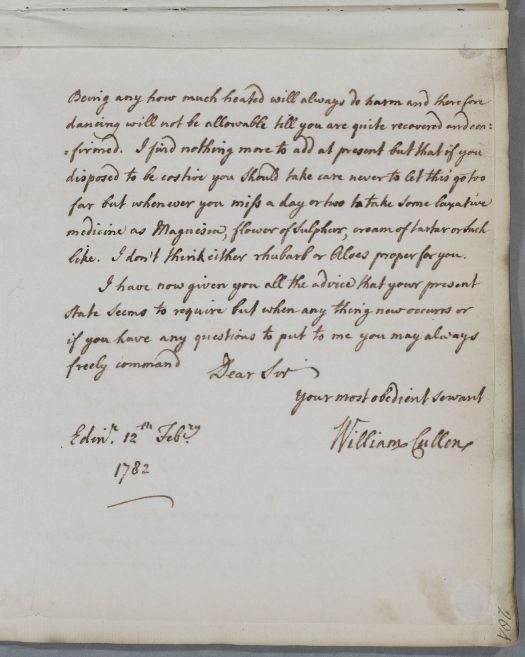 Being any how much heated will always do harm and therefore
dancing will not be allowable till you are quite recovered and con=
=firmed. I find nothing more to add at present but that if you
disposed to be costive you should take care never to let this go too
far but whenever you miss a day or two to take some laxative
medicine as Magnesia, flower of Sulphur, cream of tartar or such
like. I don't think either rhubarb or Aloes proper for you.
I have now given you all the advice that your present
state seems to require but when any thing new occurrs or
if you have any questions to put to me you may always
freely command
Dear Sir
Your most obedient servant
William Cullen
Edinr. 12th Febry.
1782
204